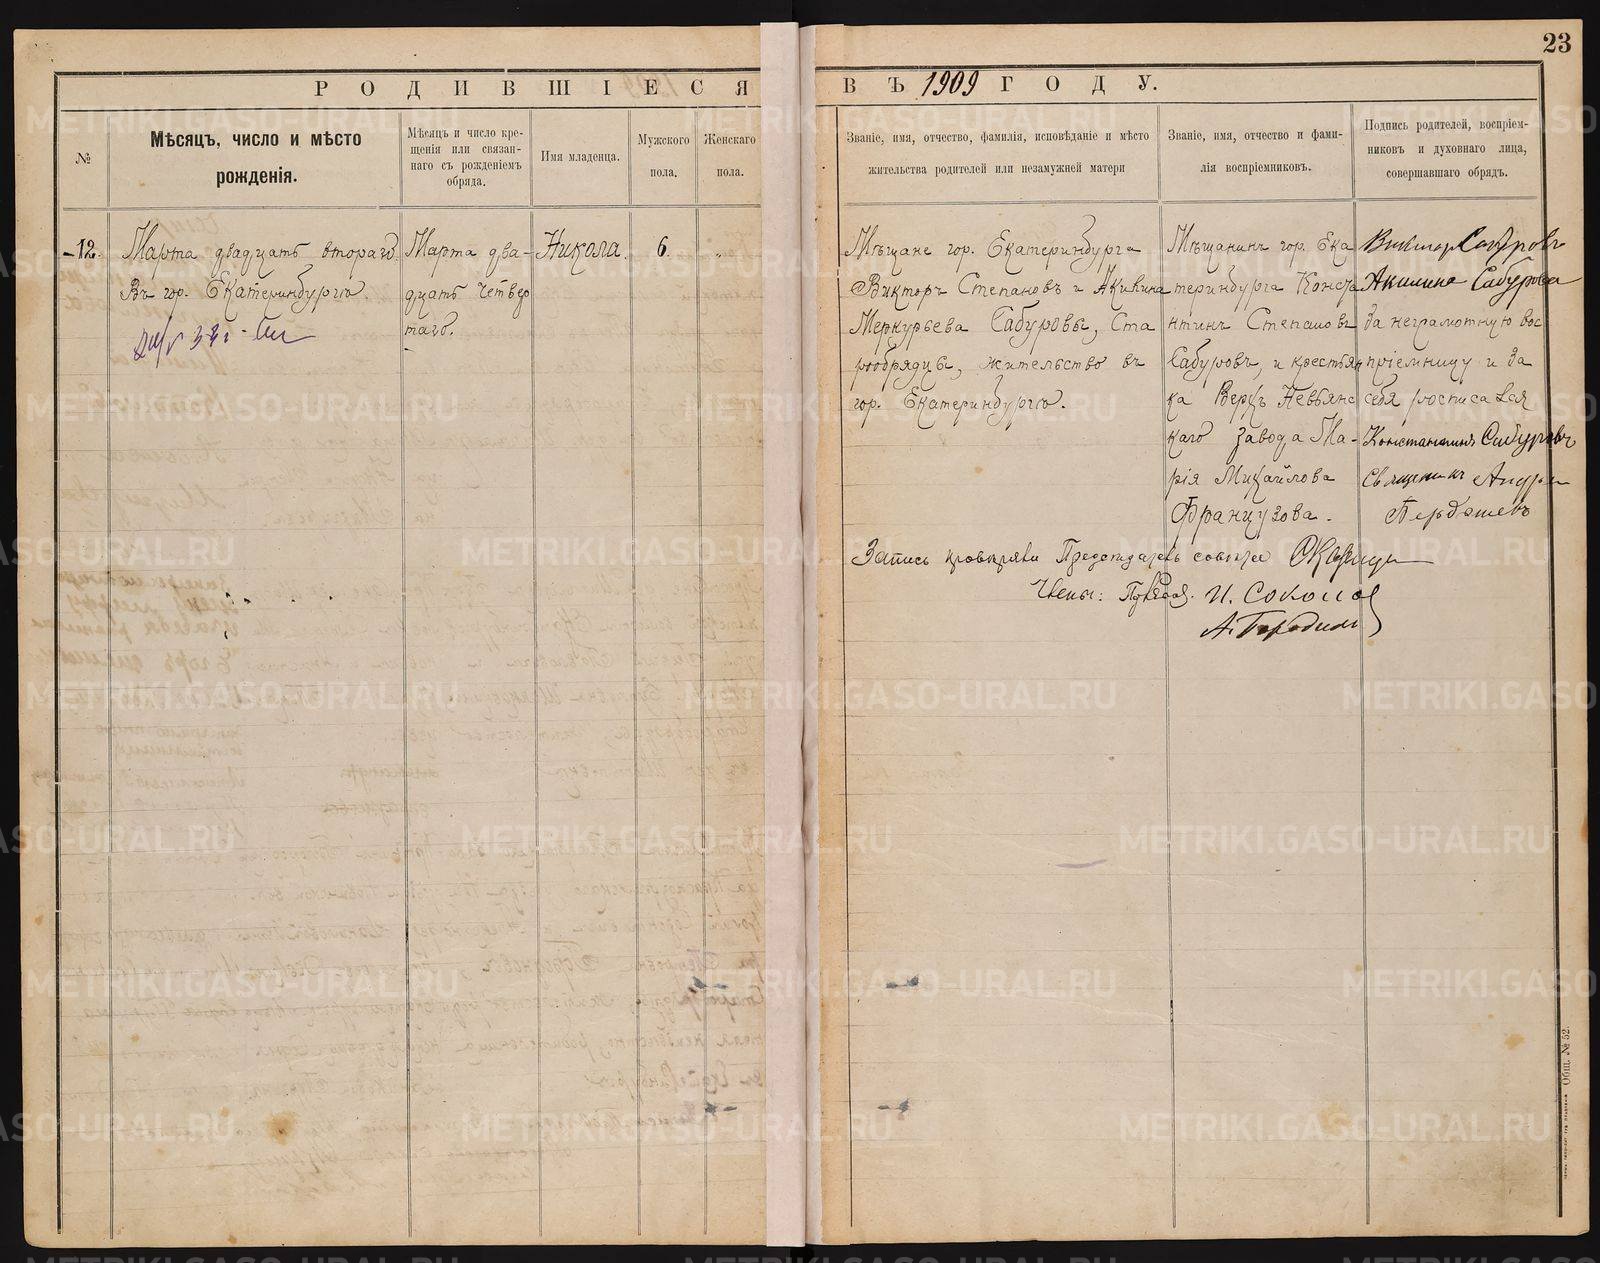 23
РОДИВШІЕСЯ ВЪ 1909 ГОДУ.
№
Мѣсяцъ, число и мѣсто
рожденія.
Мѣсяцъ и число кре-
щенія или связан-
наго съ рожденіемъ
обряда.
Имя младенца.
Мужского
пола.
Женскаго
пола.
Званіе, имя, отчество, фамилія, исповѣданіе и мѣсто
жительства родителей или незамужней матери
Званіе, имя, отчество и фами-
лія воспріемниковъ.
Подпись родителей, воспріем-
никовъ и духовнаго лица,
совершавшаго обрядъ.
12.
Марта двадцать втораго.
Въ гор. Екатеринбургѣ.
Марта два-
дцать четвер
таго.
Никола.
6
"
Мѣщане гор. Екатеринбурга
Викторъ Степановъ и Акилина
Меркурьева Сабуровы, Ста
рообрядцы, жительство въ
гор. Екатеринбургѣ.
Мѣщанинъ гор. Ека
теринбурга Конста
нтинъ Степановъ
Сабуровъ, и крестьян
ка Верхъ Невьянс
каго завода Ма-
рія Михайлова
Французова.
Викторъ Сабуровъ
Акилина Сабурова
За неграмотную вос
пріемницу и за
себя росписался
Константинъ Сабуровъ
Священикъ Андрей
Запись провѣряли Предсѣдатель совѣта
Члены: И. Соколов
METRIKI.GASO-URAL.RU
Общ. № 52.